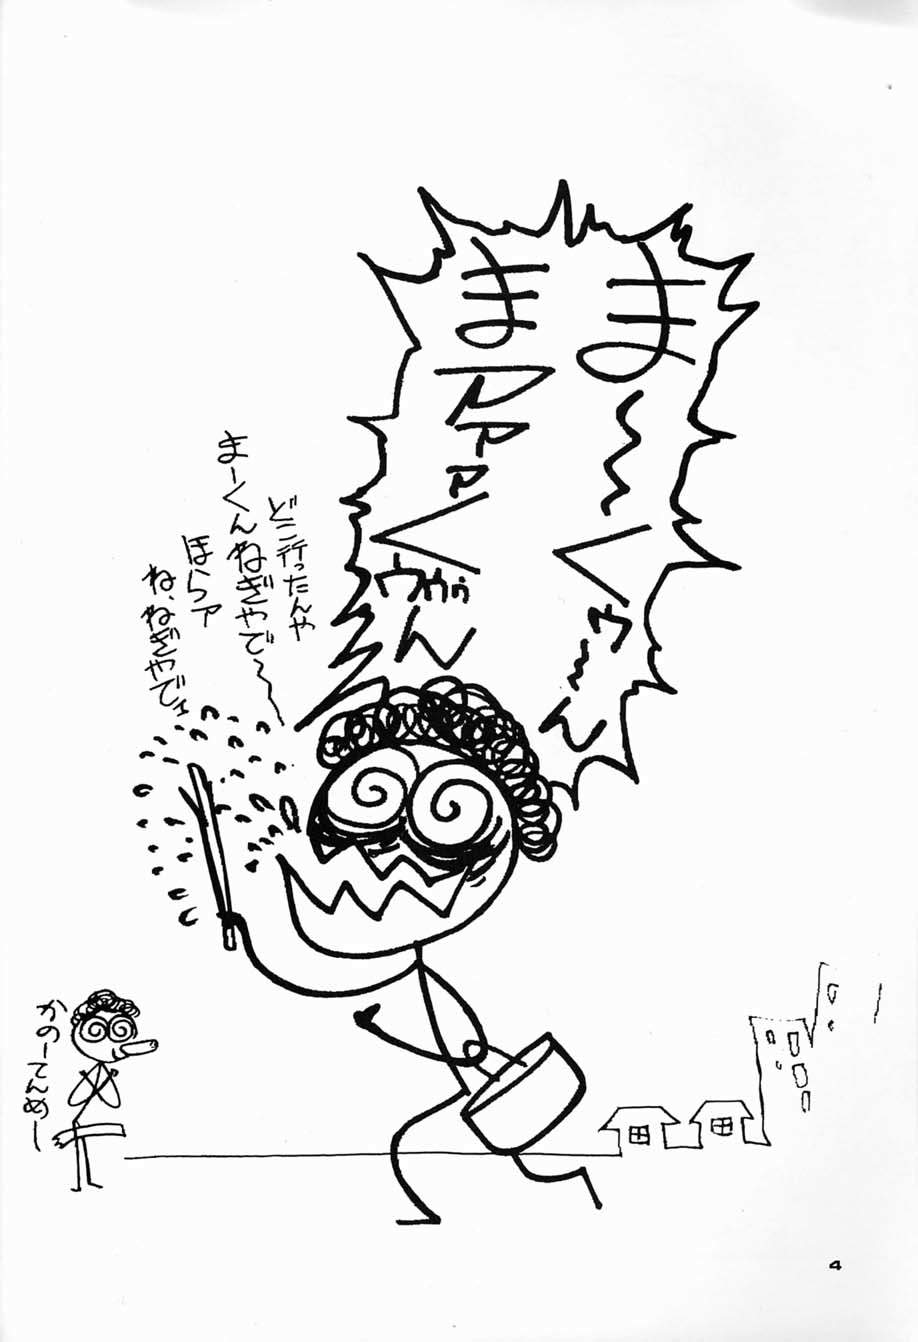 ま～くぅ～ん
まアァァくゥゥゥん
どこ行ったんや
まーくんねぎやで～
ほらァ
ね、ねぎやでェ
かのーてんめー
4